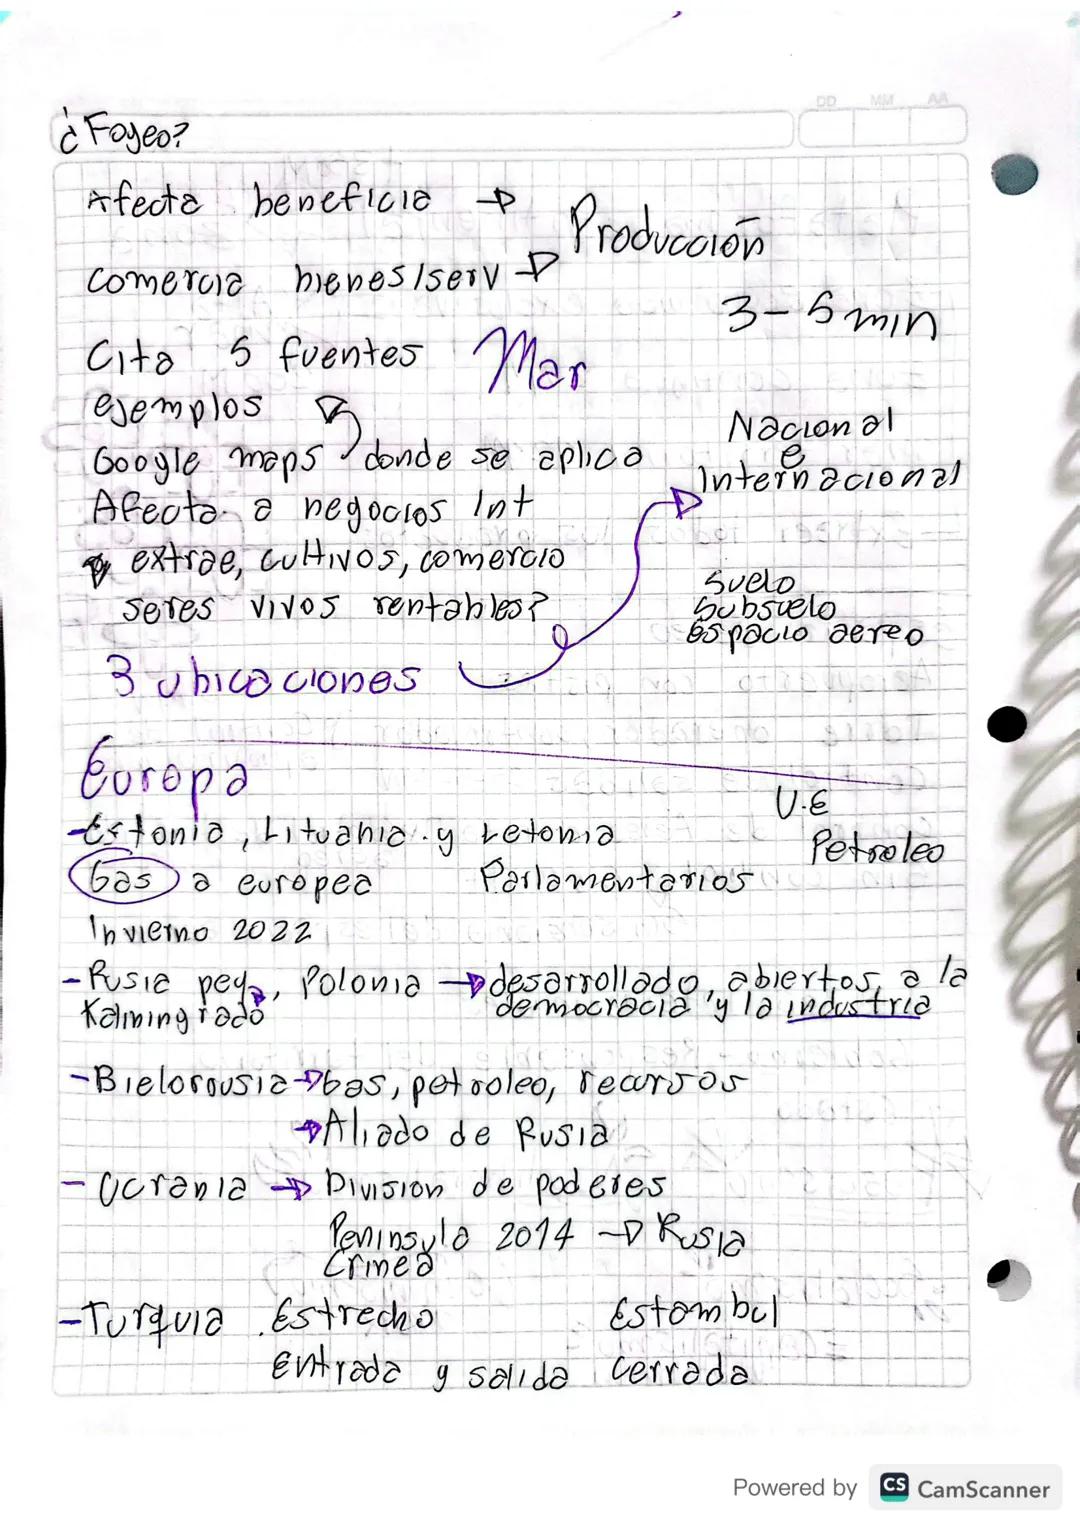 DD MM AA
¿Foyeo?
Afecta beneficia →
Producción
comercia bienes/serv →
3-5 min
Cita 5 fuentes Mar
ejemplos
Nacional
e
Internacional
Google maps donde se aplica
Afecta a negocios Int
extrae, cultivos, comercio
seres vivos rentables?
Suelo
Subsuelo
Espacio aereo
3 ubicaciones
Europa
U.E
-Estonia, Lituania y Letonia
Petroleo
Gas a europea Parlamentarios
Invierno 2022
-Rusia, Polonia → desarrollado, abiertos, a la
democracia y la industria
Kaliningrado
-Bielorousia → Gas, petroleo, recursos
→ Aliado de Rusia
-Ucrania → Division de poderes
Peninsula 2014 → Rusia
Crimea
-Turquia Estrecho Estambul
entrada y salida cerrada
Powered by CS CamScanner